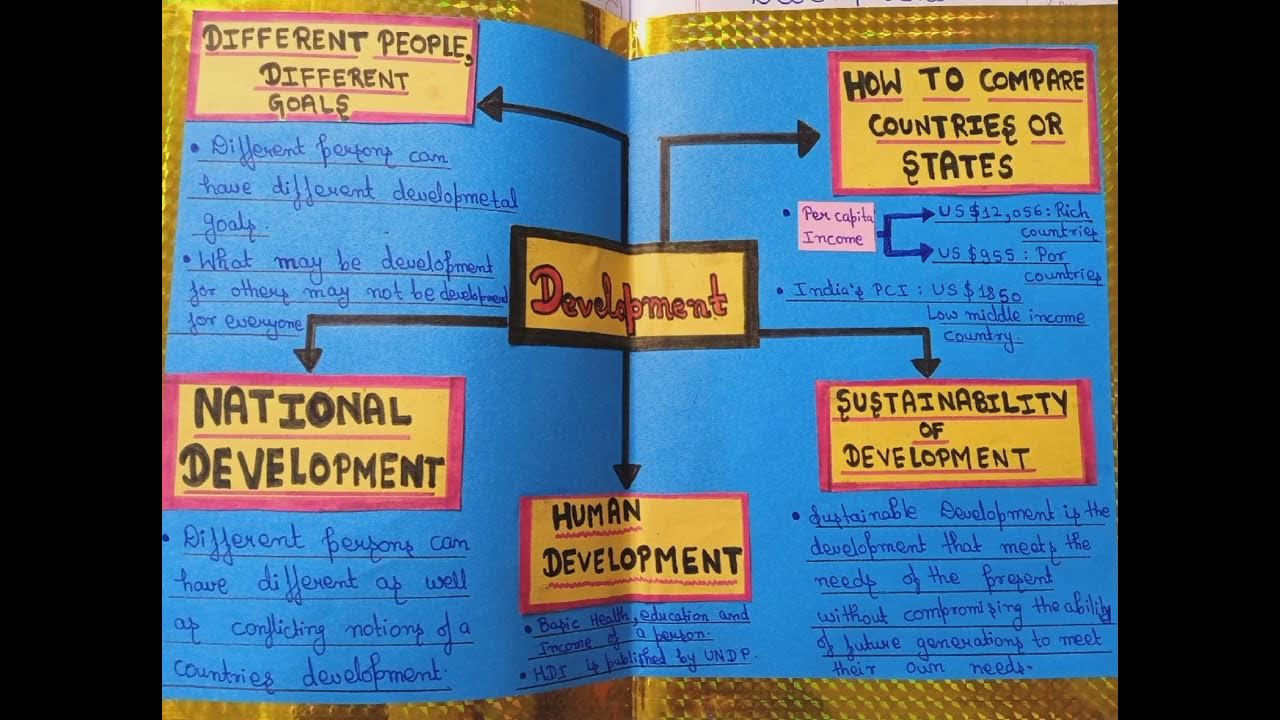 DIFFERENT PEOPLE,
DIFFERENT
GOALS
• Different persons can
have different developmetal
goals.
• What may be development
for others may not be development
for everyone
HOW TO COMPARE
COUNTRIES OR
STATES
• Per capital
Income
US $12,056: Rich
countries
US $955 : Por
countries
• India's PCI : US $1850
Low middle income
country.
Development
NATIONAL
DEVELOPMENT
• Different persons can
have different as well
as conflicting notions of a
countries development.
HUMAN
DEVELOPMENT
• Basic Health, education and
Income of a person.
• HDI is published by UNDP.
SUSTAINABILITY
OF
DEVELOPMENT
• Sustainable Development is the
development that meets the
needs of the present
without compromising the ability
of future generations to meet
their own needs.